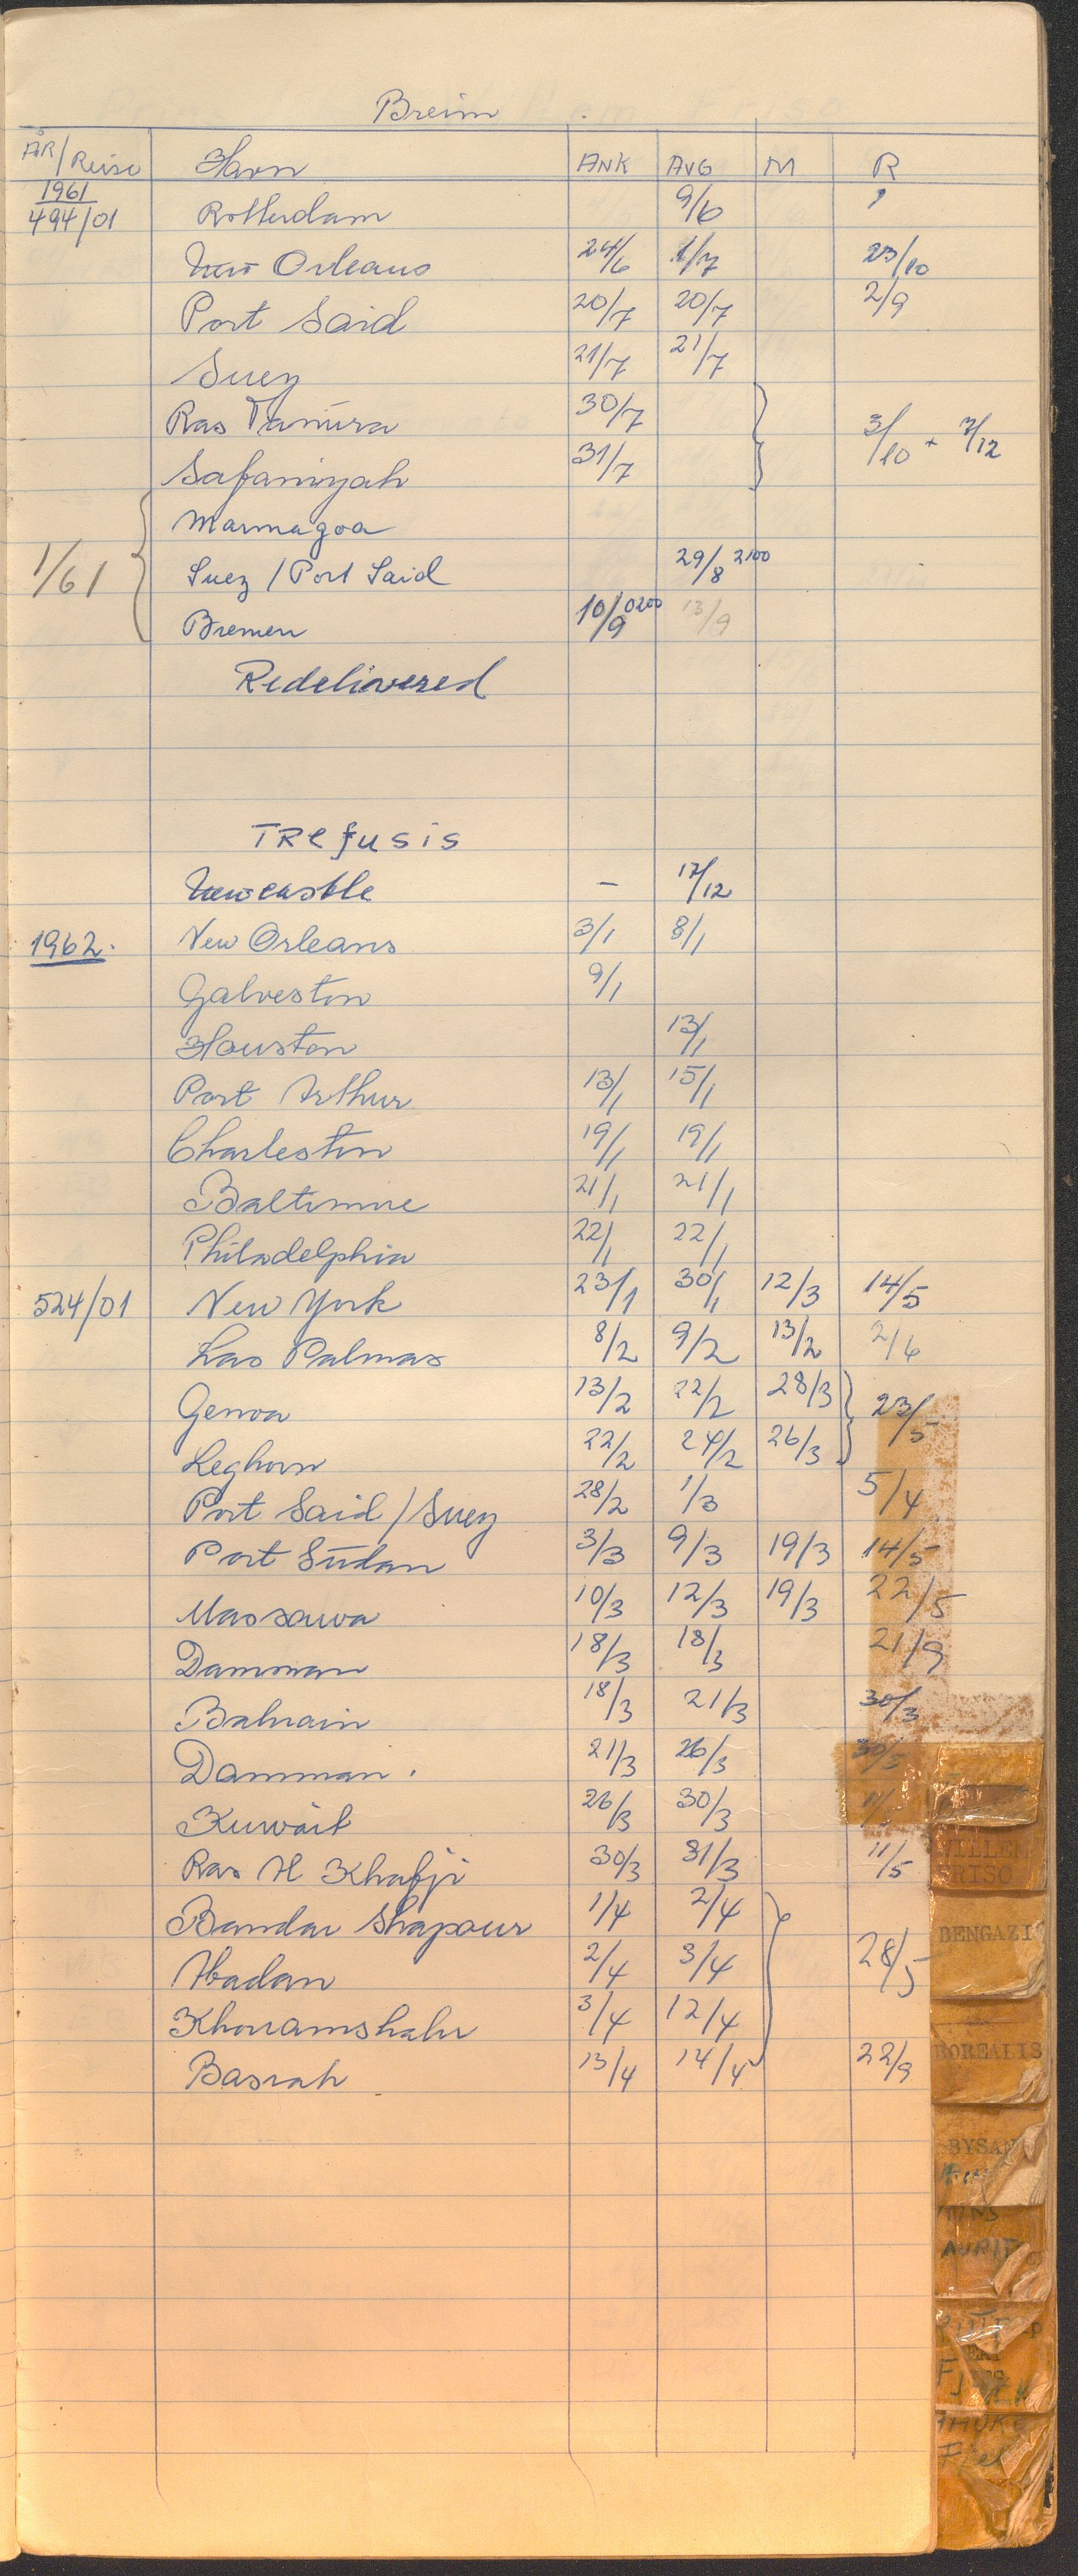 Breim
ÅR/Reise Havn ANK AVG M R
1961
494/01 Rotterdam 9/6
New Orleans 24/6 1/7 23/10
Port Said 20/7 20/7 2/9
Suez 21/7 21/7
Ras Tanura 30/7
3/10 + 7/12
Safaniyah 31/7
Marmagoa
1/61 Suez / Port Said 29/8 2100
Bremen 10/9 0200 13/9
Redelivered
TRefusis
Newcastle – 17/12
1962. New Orleans 3/1 8/1
Galveston 9/1
Houston 13/1
Port Arthur 13/1 15/1
Charleston 19/1 19/1
Baltimore 21/1 21/1
Philadelphia 22/1 22/1
524/01 New York 23/1 30/1 12/3 14/5
Las Palmas 8/2 9/2 13/2 2/6
Genoa 13/2 22/2 28/3 23/5
Leghorn 22/2 24/2 26/3
Port Said / Suez 28/2 1/3 5/4
Port Sudan 3/3 9/3 19/3 14/5
Massawa 10/3 12/3 19/3 22/5
Damman 18/3 18/3 21/9
Bahrain 18/3 21/3 30/3
Damman. 21/3 26/3 30/5
Kuwait 26/3 30/3
Ras Al Khafji 30/3 31/3 11/5
Bandar Shapour 1/4 2/4
Abadan 2/4 3/4 28/5
Khorramshahr 3/4 12/4
Basrah 13/4 14/4 22/9
BENGAZI
BOREALIS
BYSAN